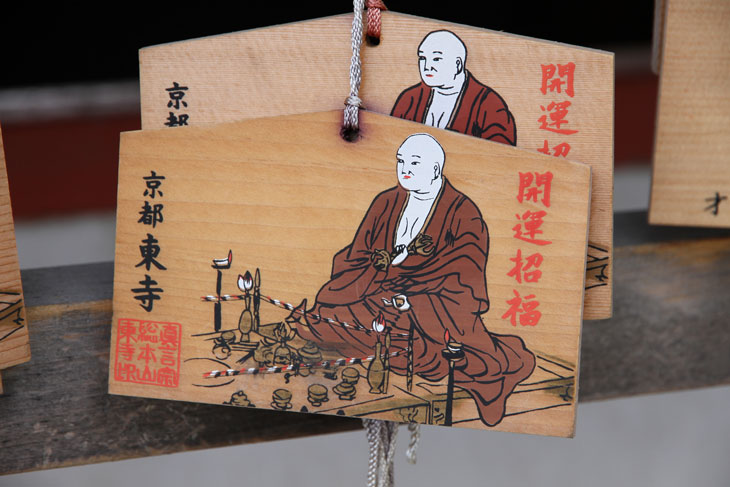 開運招
京都
開運招福
京都東寺
真言宗
総本山
東寺印
オ